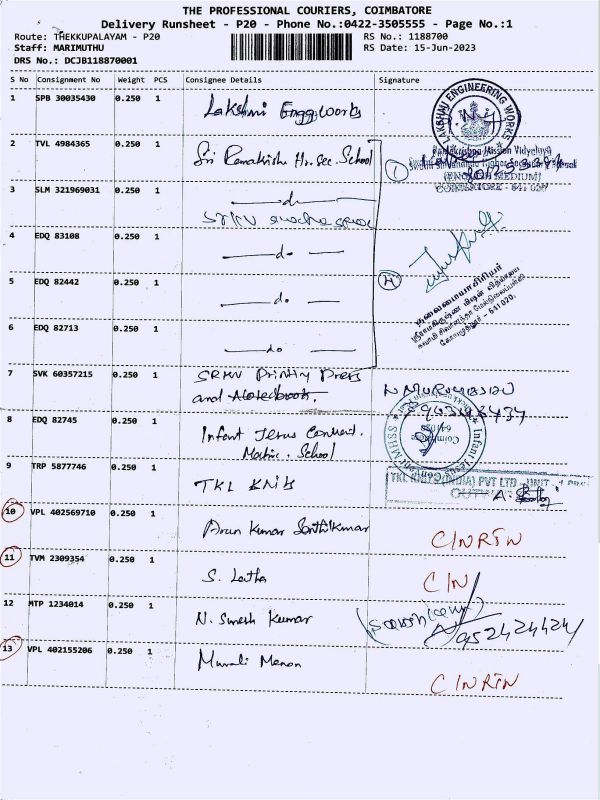 THE PROFESSIONAL COURIERS, COIMBATORE
Delivery Runsheet - P20 - Phone No.:0422-3505555 - Page No.:1
Route: THEKKUPALAYAM - P20 RS No.: 1188700
Staff: MARIMUTHU RS Date: 15-Jun-2023
DRS No.: DCJB118870001
S No Consignment No Weight PCS Consignee Details Signature
1 SPB 30035430 0.250 1 Lakshmi Engg. Works
LAKSHMI ENGINEERING WORKS
2 TVL 4984365 0.250 1 Sri Ramakrish Hr. Sec. School
Ramakrishna Mission Vidyalaya
(ENGLISH MEDIUM)
3 SLM 321969031 0.250 1 do
SRKV
4 EDQ 83108 0.250 1 do
5 EDQ 82442 0.250 1 do
தலைமையாசிரியர்
641020.
6 EDQ 82713 0.250 1 do
7 SVK 60357215 0.250 1 SRMV Printing Press
and Notebooks.
8 EDQ 82745 0.250 1 Infant Jesus Convent.
Matric. School
9 TRP 5877746 0.250 1 TKL Knits
TKL KNITS (INDIA) PVT LTD - UNIT
10 VPL 402569710 0.250 1 Arun Kumar Senthilkumar CINRTN
11 TVM 2309354 0.250 1 S. Latha CIN
12 MTP 1234014 0.250 1 N. Suresh Kumar
13 VPL 402155206 0.250 1 Murali Menon CINRTN